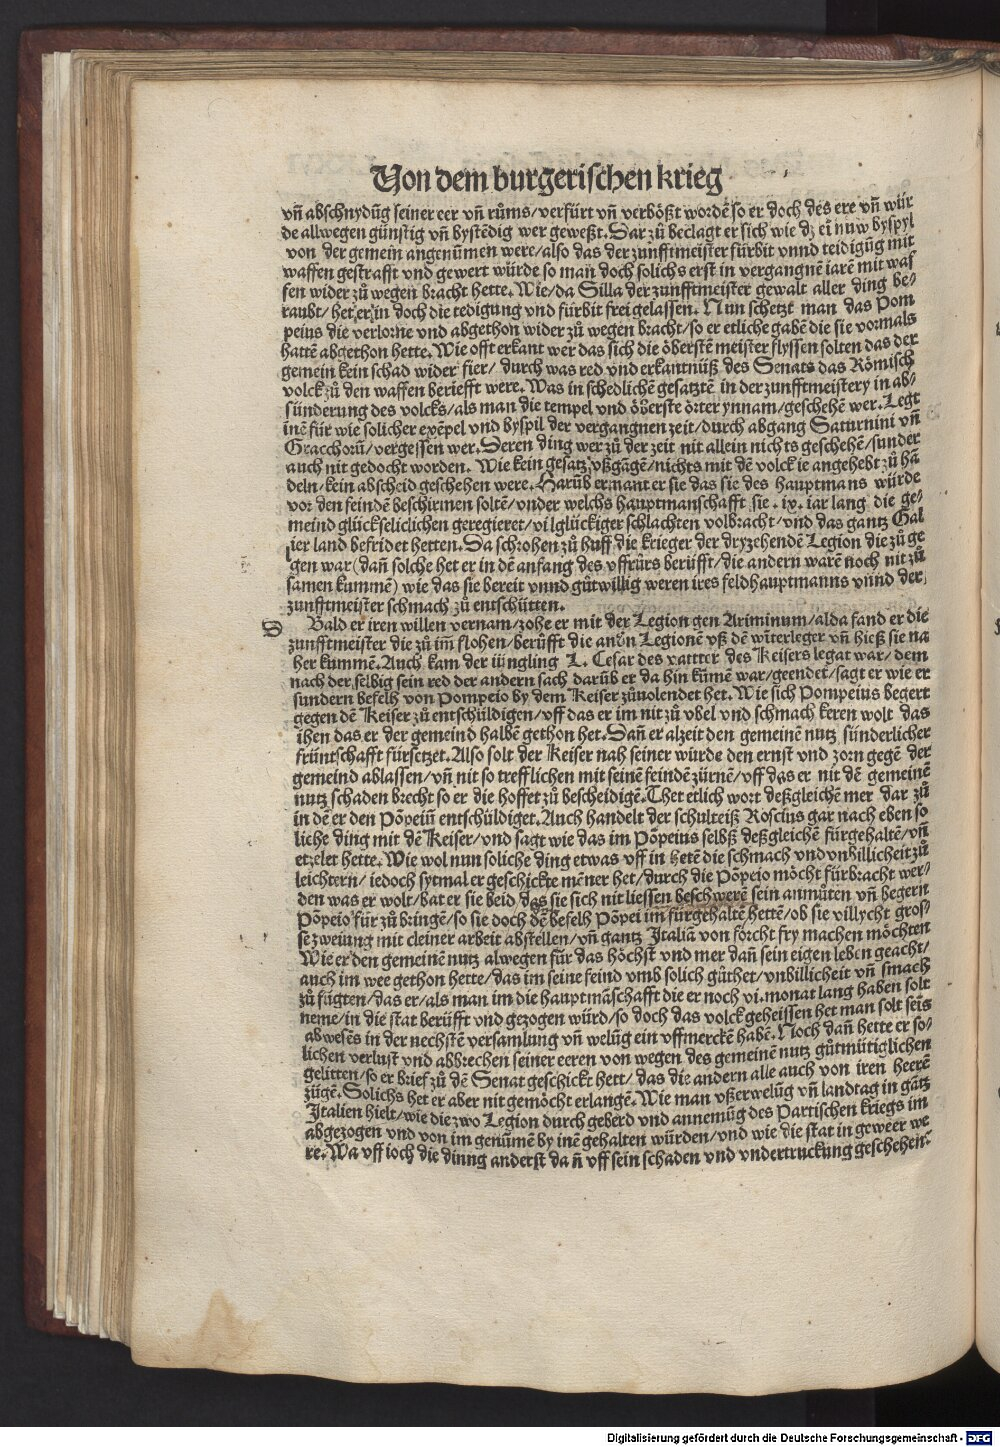 Von dem burgerischen krieg
vñ abschnydũg seiner eer vñ růms/verfürt vñ verbößt wordẽ so er doch des ere vñ wür
de allwegen günstig vñ bystẽdig wer geweßt. Dar zů beclagt er sich wie dz ei nuw byspyl
von der gemein angenũmen were/also das der zunfftmeister fürbit vnnd teidigũg mit
waffen gestrafft vnd gewert würde so man doch solichs erst in vergangnẽ iarẽ mit waf
fen wider zů wegen bracht hette. Wie/da Silla der zunfftmeister gewalt aller ding be-
raubt/het er in doch die tedigung vnd fürbit frei gelassen. Nun schetzt man das Pom
peius die verlorne vnd abgethon wider zů wegen bracht/so er etliche gabẽ die sie vormals
hattẽ abgethon hette. Wie offt erkant wer das sich die öberstẽ meister flyssen solten das der
gemein kein schad wider fier/ durch was red vnd erkantnüß des Senats das Römisch
volck zů den waffen beriefft were. Was in schedlichẽ gesatztẽ in der zunfftmeistery in ab-
sünderung des volcks/als man die tempel vnd öberste örter ynnam/geschehẽ wer. Legt
inẽ für wie solicher exẽpel vnd byspil der vergangnen zeit/durch abgang Saturnini vñ
Gracchorũ/vergessen wer. Deren ding wer zů der zeit nit allein nichts geschehẽ/sunder
auch nit gedocht worden. Wie kein gesatz vßgãgẽ/nichts mit dẽ volck ie angehebt zů hã
deln/kein abscheid geschehen were. Harũb ermant er sie das sie des hauptmans würde
vor den feindẽ beschirmen soltẽ/vnder welchs hauptmanschafft sie .ix. iar lang die ge-
meind glückseliclichen geregieret/vil glückiger schlachten volbracht/vnd das gantz Gal
lier land befridet hetten. Da schrohen zů huff die krieger der dryzehendẽ Legion die zů ge
gen war (dañ solche het er in dẽ anfang des vffrůrs berüfft/die andern warẽ noch nit zů
samen kummẽ) wie das sie bereit vnnd gůtwillig weren ires feldhauptmanns vnnd der
zunfftmeister schmach zů entschütten.
D Bald er iren willen vernam/zohe er mit der Legion gen Ariminum/alda fand er die
zunfftmeister die zů im̃ flohen/berůfft die andn Legionẽ vß dẽ wĩterleger vñ hieß sie na
her kummẽ. Auch kam der iüngling L. Cesar des vattter des Keisers legat war/dem
nach der selbig sein red der andern sach darũb er da hin kũmẽ war/geendet/sagt er wie er
sundern befelh von Pompeio by dem Keiser zůuolendet het. Wie sich Pompeius begert
gegen dẽ Keiser zů entschüldigen/vff das er im nit zů vbel vnd schmach keren wolt das
ihen das er der gemeind halbẽ gethon het. Dañ er alzeit den gemeinẽ nutz sünderlicher
früntschafft fürsetzet. Also solt der Keiser nah seiner würde den ernst vnd zorn gegẽ der
gemeind ablassen/vñ nit so trefflichen mit seinẽ feindẽ zürnẽ/vff das er nit dẽ gemeinẽ
nutz schaden brecht so er die hoffet zů bescheidigẽ. Thet etlich wort deßgleichẽ mer dar zů
in dẽ er den Põpeiũ entschüldiget. Auch handelt der schulteiß Roscius gar nach eben so
liche ding mit dẽ Keiser/vnd sagt wie das im Põpeius selbß deßgleichẽ fürgehaltẽ/vñ
etzelet hette. Wie wol nun soliche ding etwas vff in hetẽ die schmach vnd vnbillicheit zů
leichtern/iedoch sytmal er geschickte mẽner het/durch die Põpeio möcht fürbracht wer-
den was er wolt/bat er sie beid/das sie sich nit liessen beschwerẽ sein anmůten vñ begern
Põpeio für zů bringẽ/so sie doch dẽ befelh Põpei im fürgehaltẽ hettẽ/ob sie villycht gros-
se zweiung mit cleiner arbeit abstellen/vñ gantz Italiã von forcht fry machen möchten
Wie er den gemeinẽ nutz alwegen für das höchst vnd mer dañ sein eigen leben geacht/
auch im wee gethon hette/das im seine feind vmb solich gůthet/vnbillicheit vñ smach
zů fügten/das er/als man im die hauptmãschafft die er noch vi. monat lang haben solt
neme/in die stat berüfft vnd gezogen würd/so doch das volck geheissen het man solt seis
abwesẽs in der nechstẽ versamlung vñ welũg ein vffmerckẽ habẽ. Noch dañ hette er so-
lichen verlust vnd abbrechen seiner eeren von wegen des gemeinẽ nutz gůtmütiglichen
gelitten/so er brief zů dẽ Senat geschickt hett/das die andern alle auch von iren heerẽ
zügẽ. Solichs het er aber nit gemöcht erlangẽ. Wie man vßerwelũg vñ landtag in gãtz
Italien hielt/wie die zwo Legion durch geberd vnd annemũg des Partischen kriegs im
abgezogen vnd von im genũmẽ by inẽ gehalten würden/vnd wie die stat in geweer we
re. Wa vff ioch die dinng anderst da ñ vff sein schaden vnd vndertruckung geschehen.
Digitalisierung gefördert durch die Deutsche Forschungsgemeinschaft - DFG